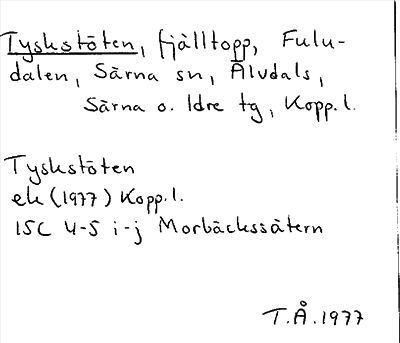 Tyskstöten, fjälltopp, Fulu-
dalen, Särna sn, Älvdals,
Särna o. Idre tg, Kopp.l.
Tyskstöten
ek (1977) Kopp.l.
15C 4-5 i-j Morbäckssätern
T.Å.1977